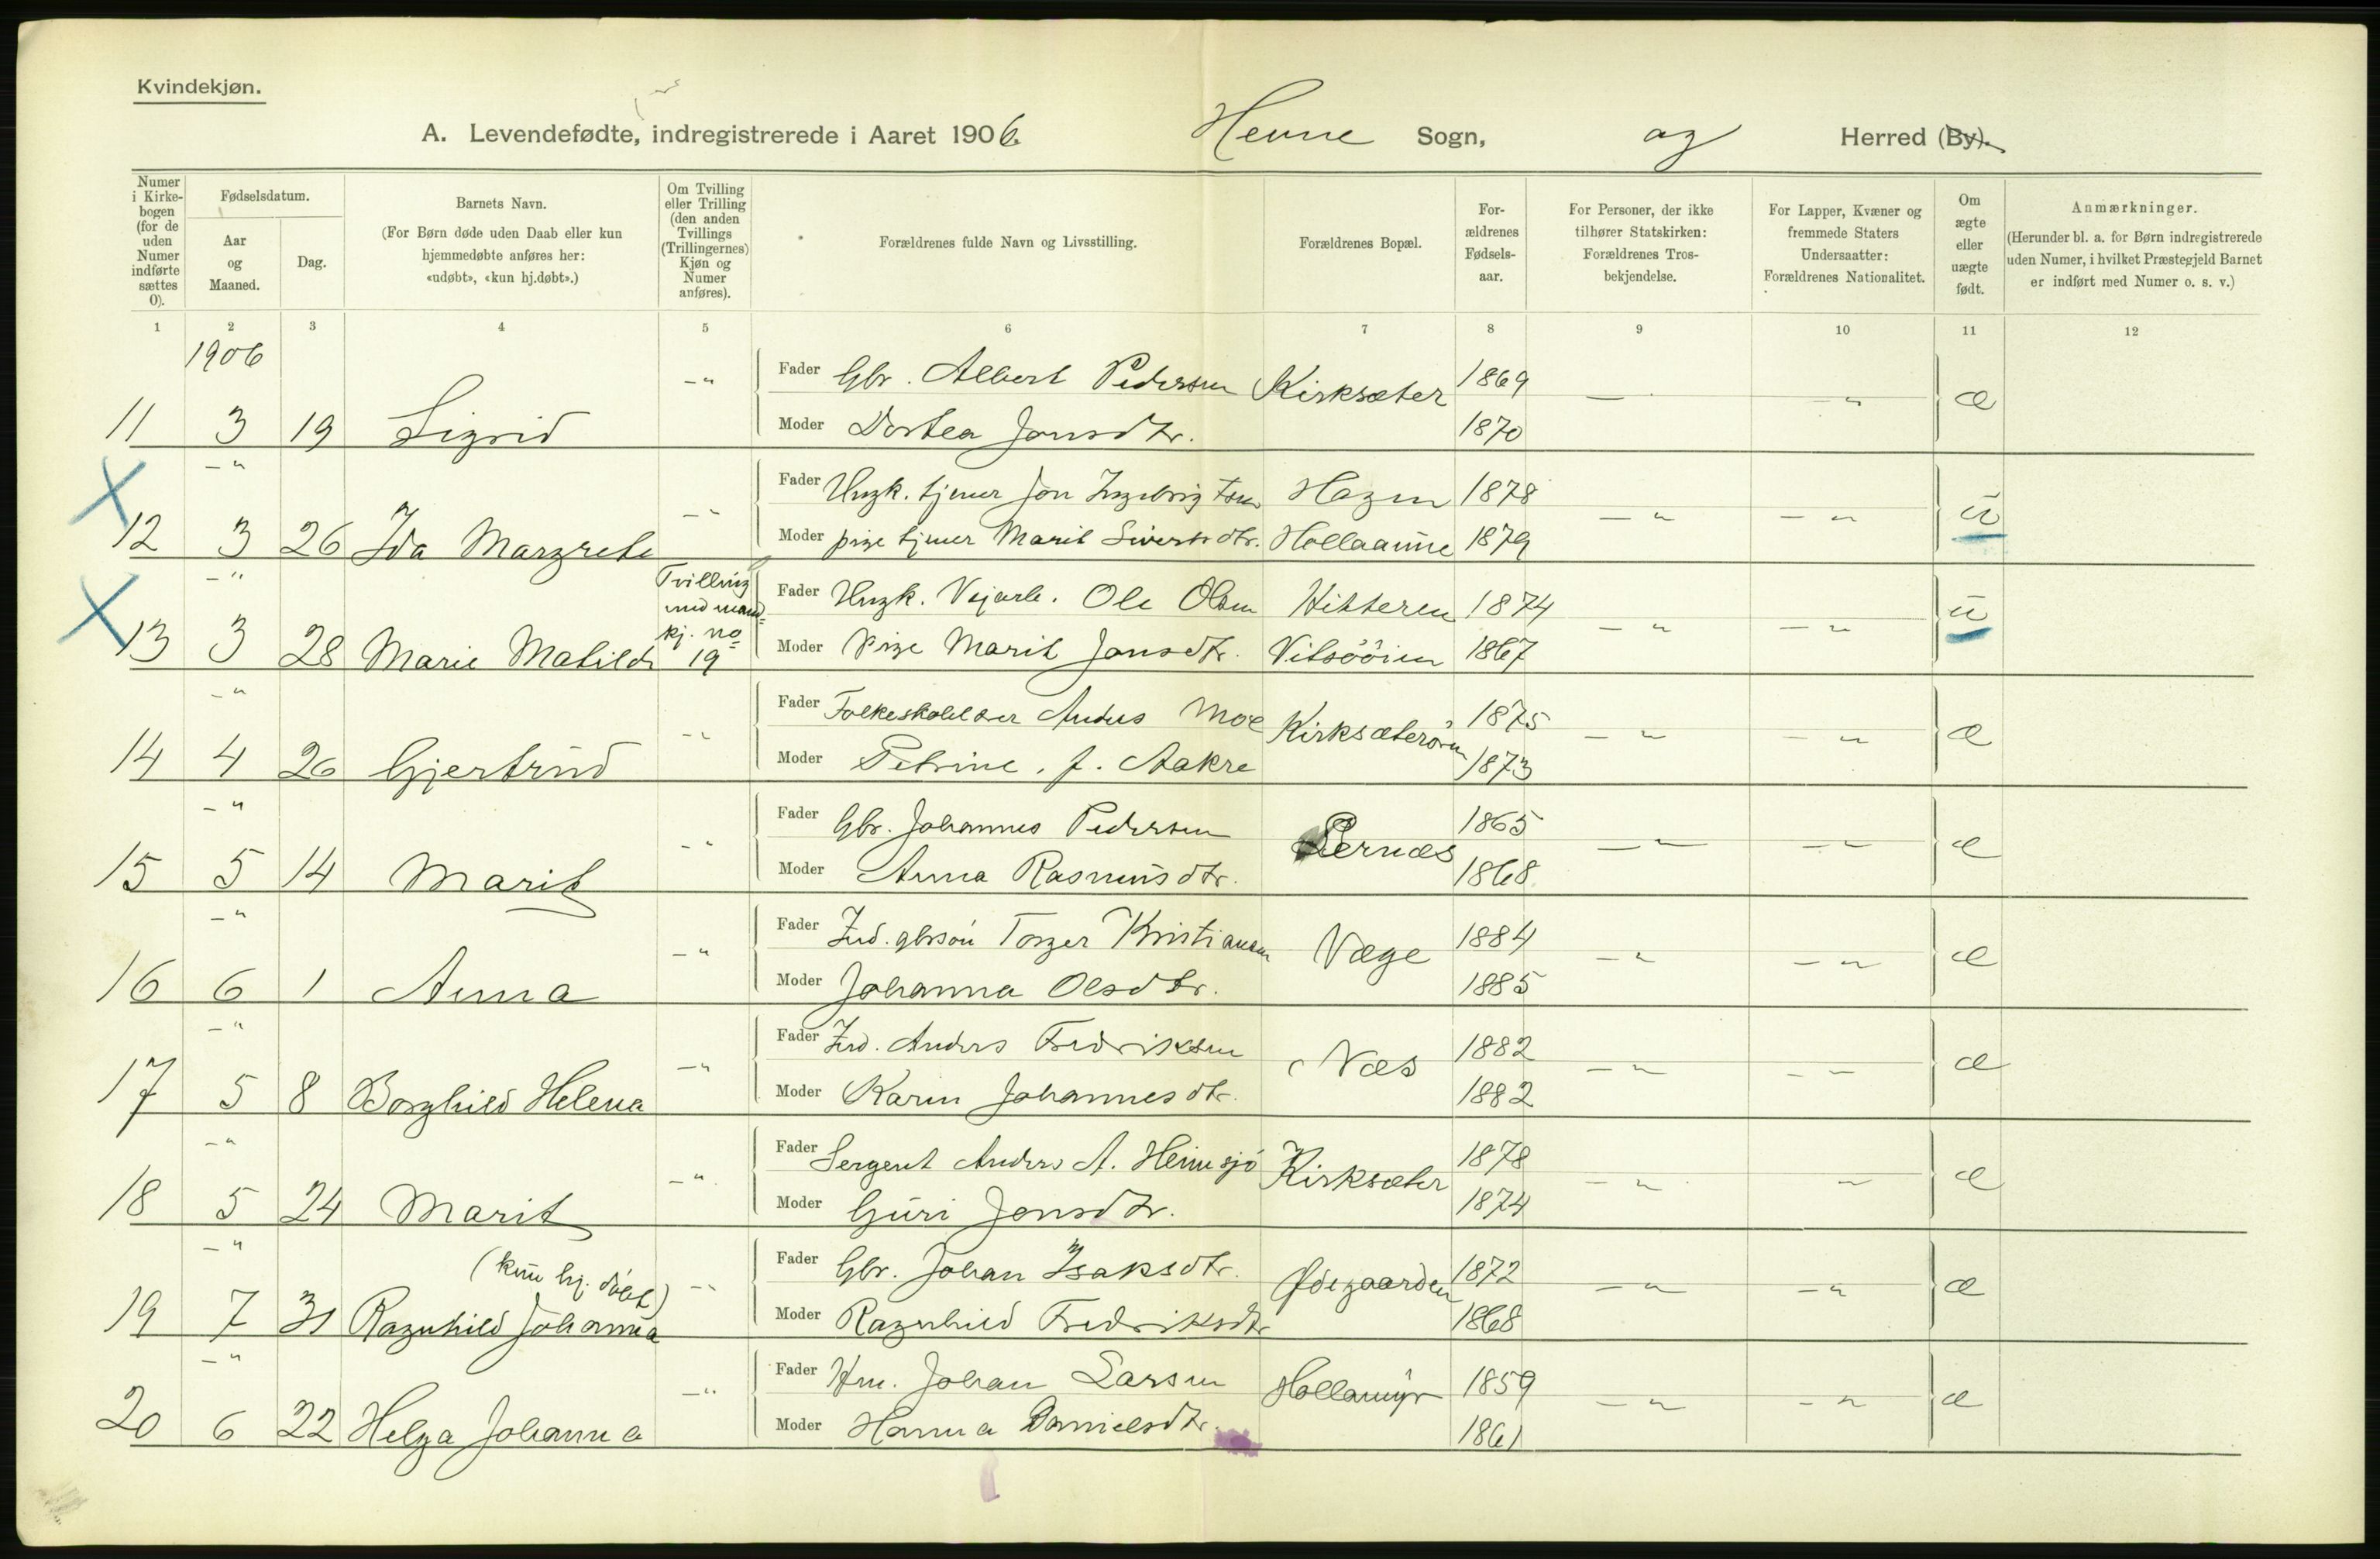 Kvindekjøn.
A. Levendefødte, indregistrerede i Aaret 1906. Hevne Sogn, og Herred (By).
Numer i Kirkebogen (for de uden Numer indførte sættes 0).
Fødselsdatum.
Aar og Maaned.
Dag.
Barnets Navn.
(For Børn døde uden Daab eller kun hjemmedøbte anføres her: «udøbt», «kun hj.døbt».)
Om Tvilling eller Trilling (den anden Tvillings (Trillingernes) Kjøn og Numer anføres).
Forældrenes fulde Navn og Livsstilling.
Forældrenes Bopæl.
Forældrenes Fødselsaar.
For Personer, der ikke tilhører Statskirken: Forældrenes Trosbekjendelse.
For Lapper, Kvæner og fremmede Staters Undersaatter: Forældrenes Nationalitet.
Om ægte eller uægte født.
Anmærkninger.
(Herunder bl. a. for Børn indregistrerede uden Numer, i hvilket Præstegjeld Barnet er indført med Numer o. s. v.)
1 2 3 4 5 6 7 8 9 10 11 12
1906
Fader Gbr. Albert Pedersen Kirksæter 1869
11 3 19 Sigrid -" Moder Dortea Jonsdtr. 1870 — -" æ
-" Fader Ungk. tjener Jon Ingebrigtsen Hagen 1878
12 3 26 Ida Margrete -" Moder pige tjener Marit Sivertsdtr. Hollaaune 1879 -" -" u
-" Tvilling med mandkj. no 19 Fader Ungk. Vejarb. Ole Olsen Hitteren 1874
13 3 28 Marie Matilde Moder Pige Marit Jonsdtr. Vitsööien 1867 -" -" u
-" Fader Folkeskolelærer Anders Moe Kirksæterören 1875
14 4 26 Gjertrud -" Moder Petrine f. Aakre 1873 -" -" æ
-" Fader Gbr. Johannes Pedersen 1865
15 5 14 Marit -" Moder Anna Rasmusdtr. 1868 -" -" æ
-" Fader Ind. gbrsön Torger Kristiansen Vage 1884
16 6 1 Anna -" Moder Johanna Olsdtr. 1885 -" -" æ
-" Fader Ind. Anders Fredriksen Næs 1882
17 5 8 Borghild Helena -" Moder Karen Johannesdtr. 1882 -" -" æ
-" Fader Sergent Anders A. Heimsjö Kirksæter 1878
18 5 24 Marit -" Moder Guri Jonsdtr. 1874 -" -" æ
-" (kun hj. döbt) Fader Gbr. Johan Isaksdtr. Ødegaarden 1872
19 7 31 Ragnhild Johanna -" Moder Ragnhild Fredriksdtr 1868 -" -" æ
-" Fader Hm. Johan Larsen Hollamyr 1859
20 6 22 Helga Johanna -" Moder Hanna Danielsdtr. 1861 -" -" æ